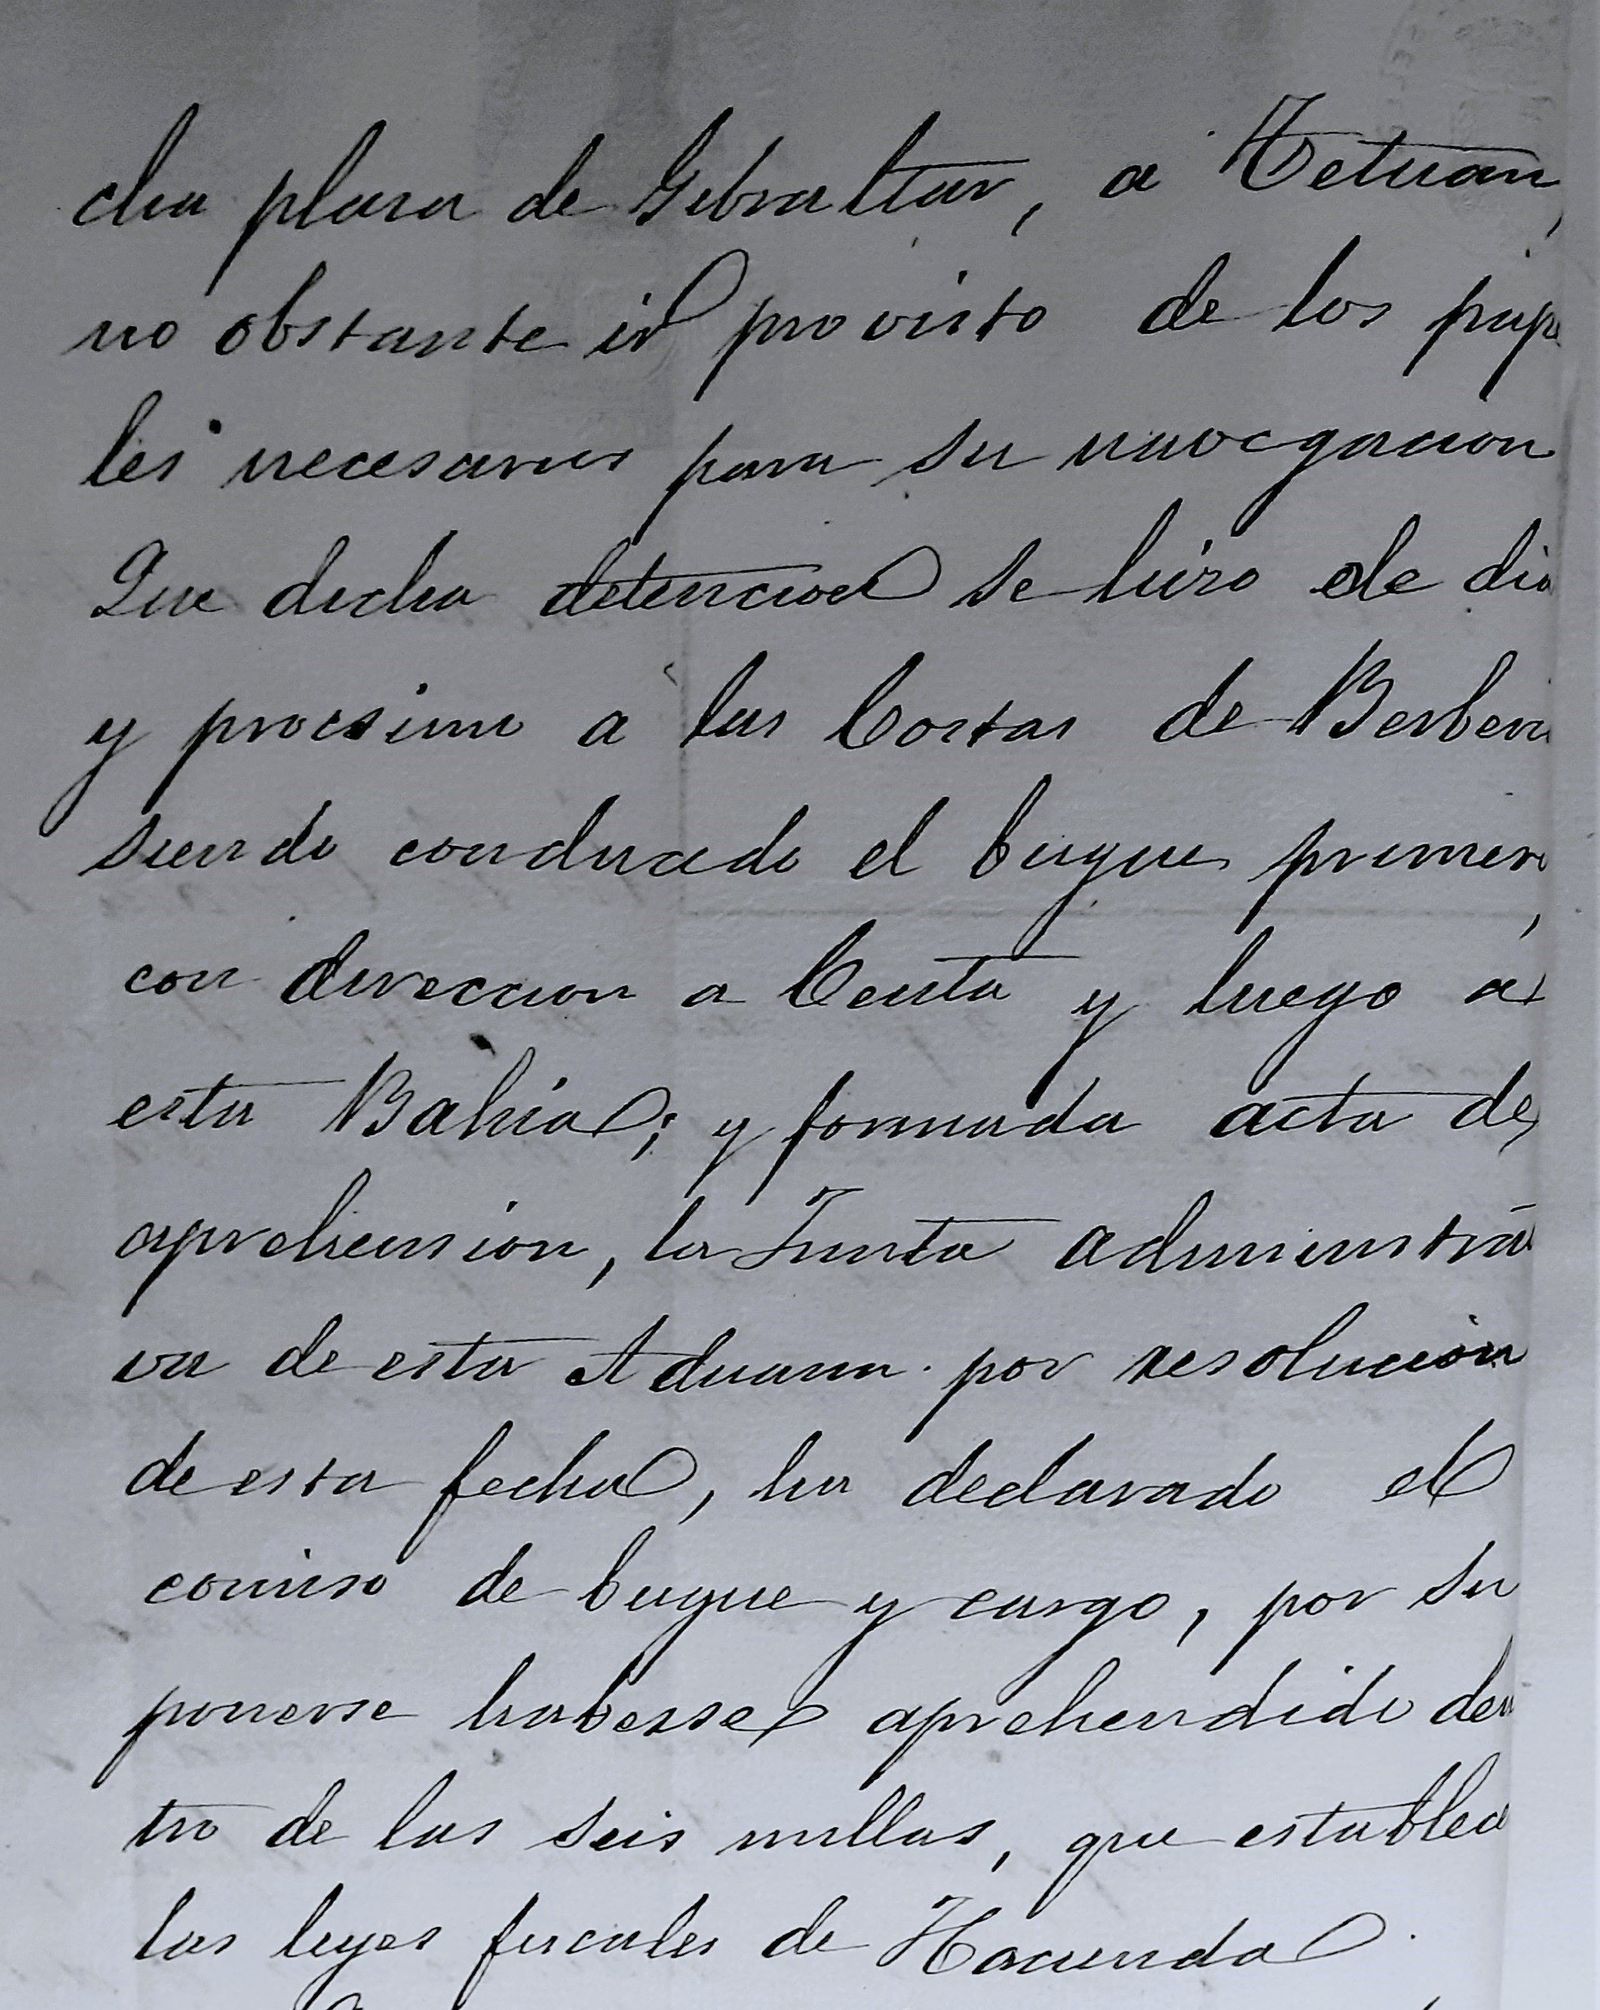 cha plaza de Gibraltar, a Tetuan,
no obstante ir provisto de los pape
les necesarios para su navegacion
Que dicha detencion se hizo de dia
y procsimo a las Costas de Berberi
siendo conducido el buque primero,
con direccion a Ceuta y luego a
esta Bahia; y formada acta de
aprehension, la Junta administrati
va de esta Aduana por resolucion
de esta fecha, ha declarado el
comiso de buque y cargo, por su
ponerse haberse aprehendido den
tro de las seis millas, que establece
las leyes fiscales de Hacienda.